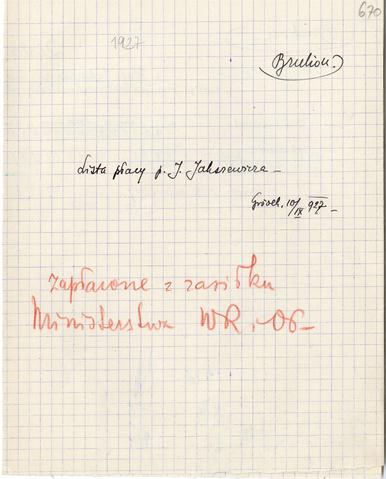 670
1927
Brulion.
Lista płacy p. J. Jakszewicza –
10/IX 927 –
Zapłacone z zasiłku
Ministerstwa WR i OP –